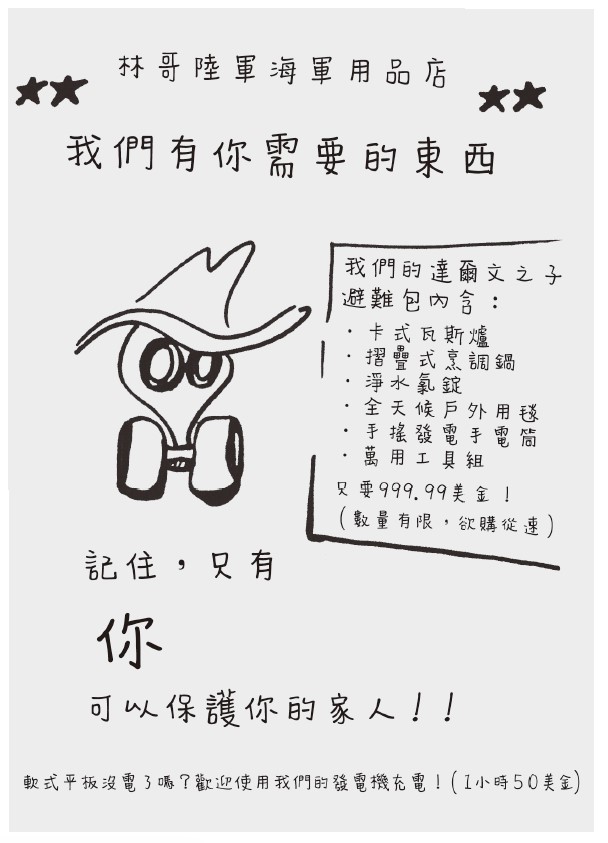 林哥陸軍海軍用品店
我們有你需要的東西
我們的達爾文之子
避難包內含：
・卡式瓦斯爐
・摺疊式烹調鍋
・淨水氯錠
・全天候戶外用毯
・手搖發電手電筒
・萬用工具組
只要999.99美金！
（數量有限，欲購從速）
記住，只有
你
可以保護你的家人！！
軟式平板沒電了嗎？歡迎使用我們的發電機充電！（1小時50美金）